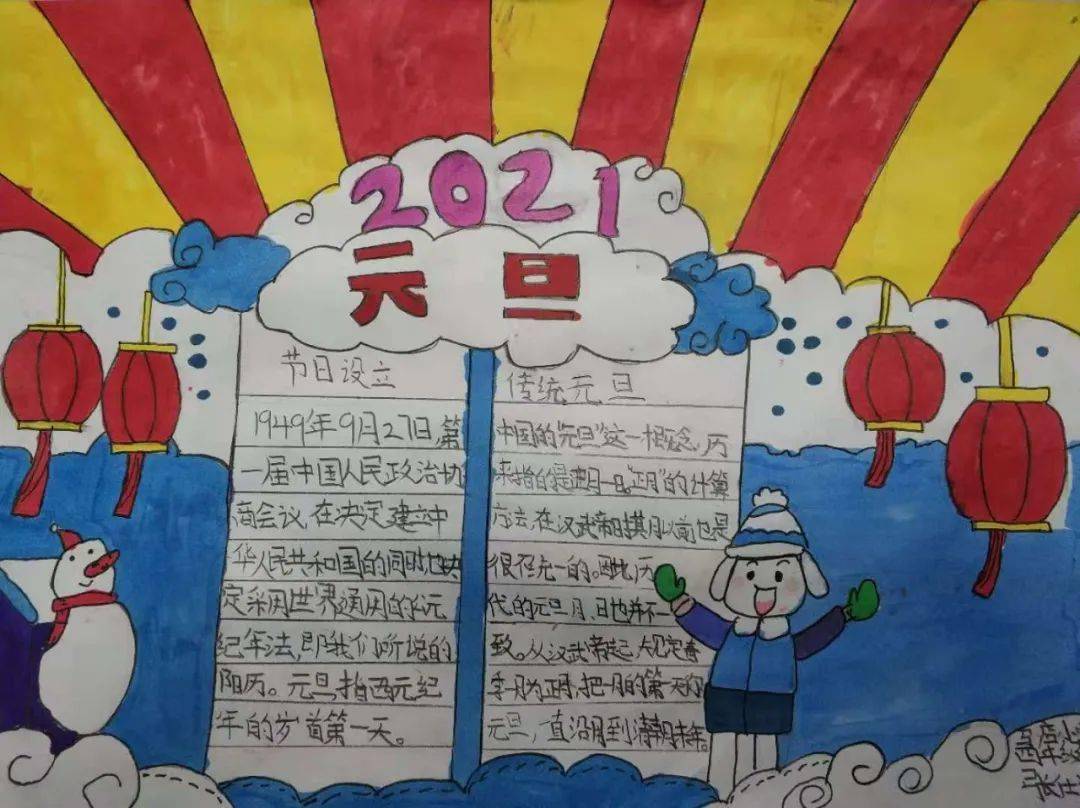 2021
元旦
节日设立
1949年9月27日第
一届中国人民政治协
商会议,在决定建立中
华人民共和国的同时也决
定采用世界通用的公元
纪年法,即我们所说的
阳历。元旦指西元纪
年的岁首第一天。
传统元旦
中国的“元旦”这一概念,历
来指的是正月一日。“正月”的计算
方法,在汉武帝时期以前也是
很不统一的。因此,历
代的元旦月、日也并不
致。从汉武帝起,规定春
季一月为正月,把一月的第一天称
元旦,一直沿用到清朝末年。